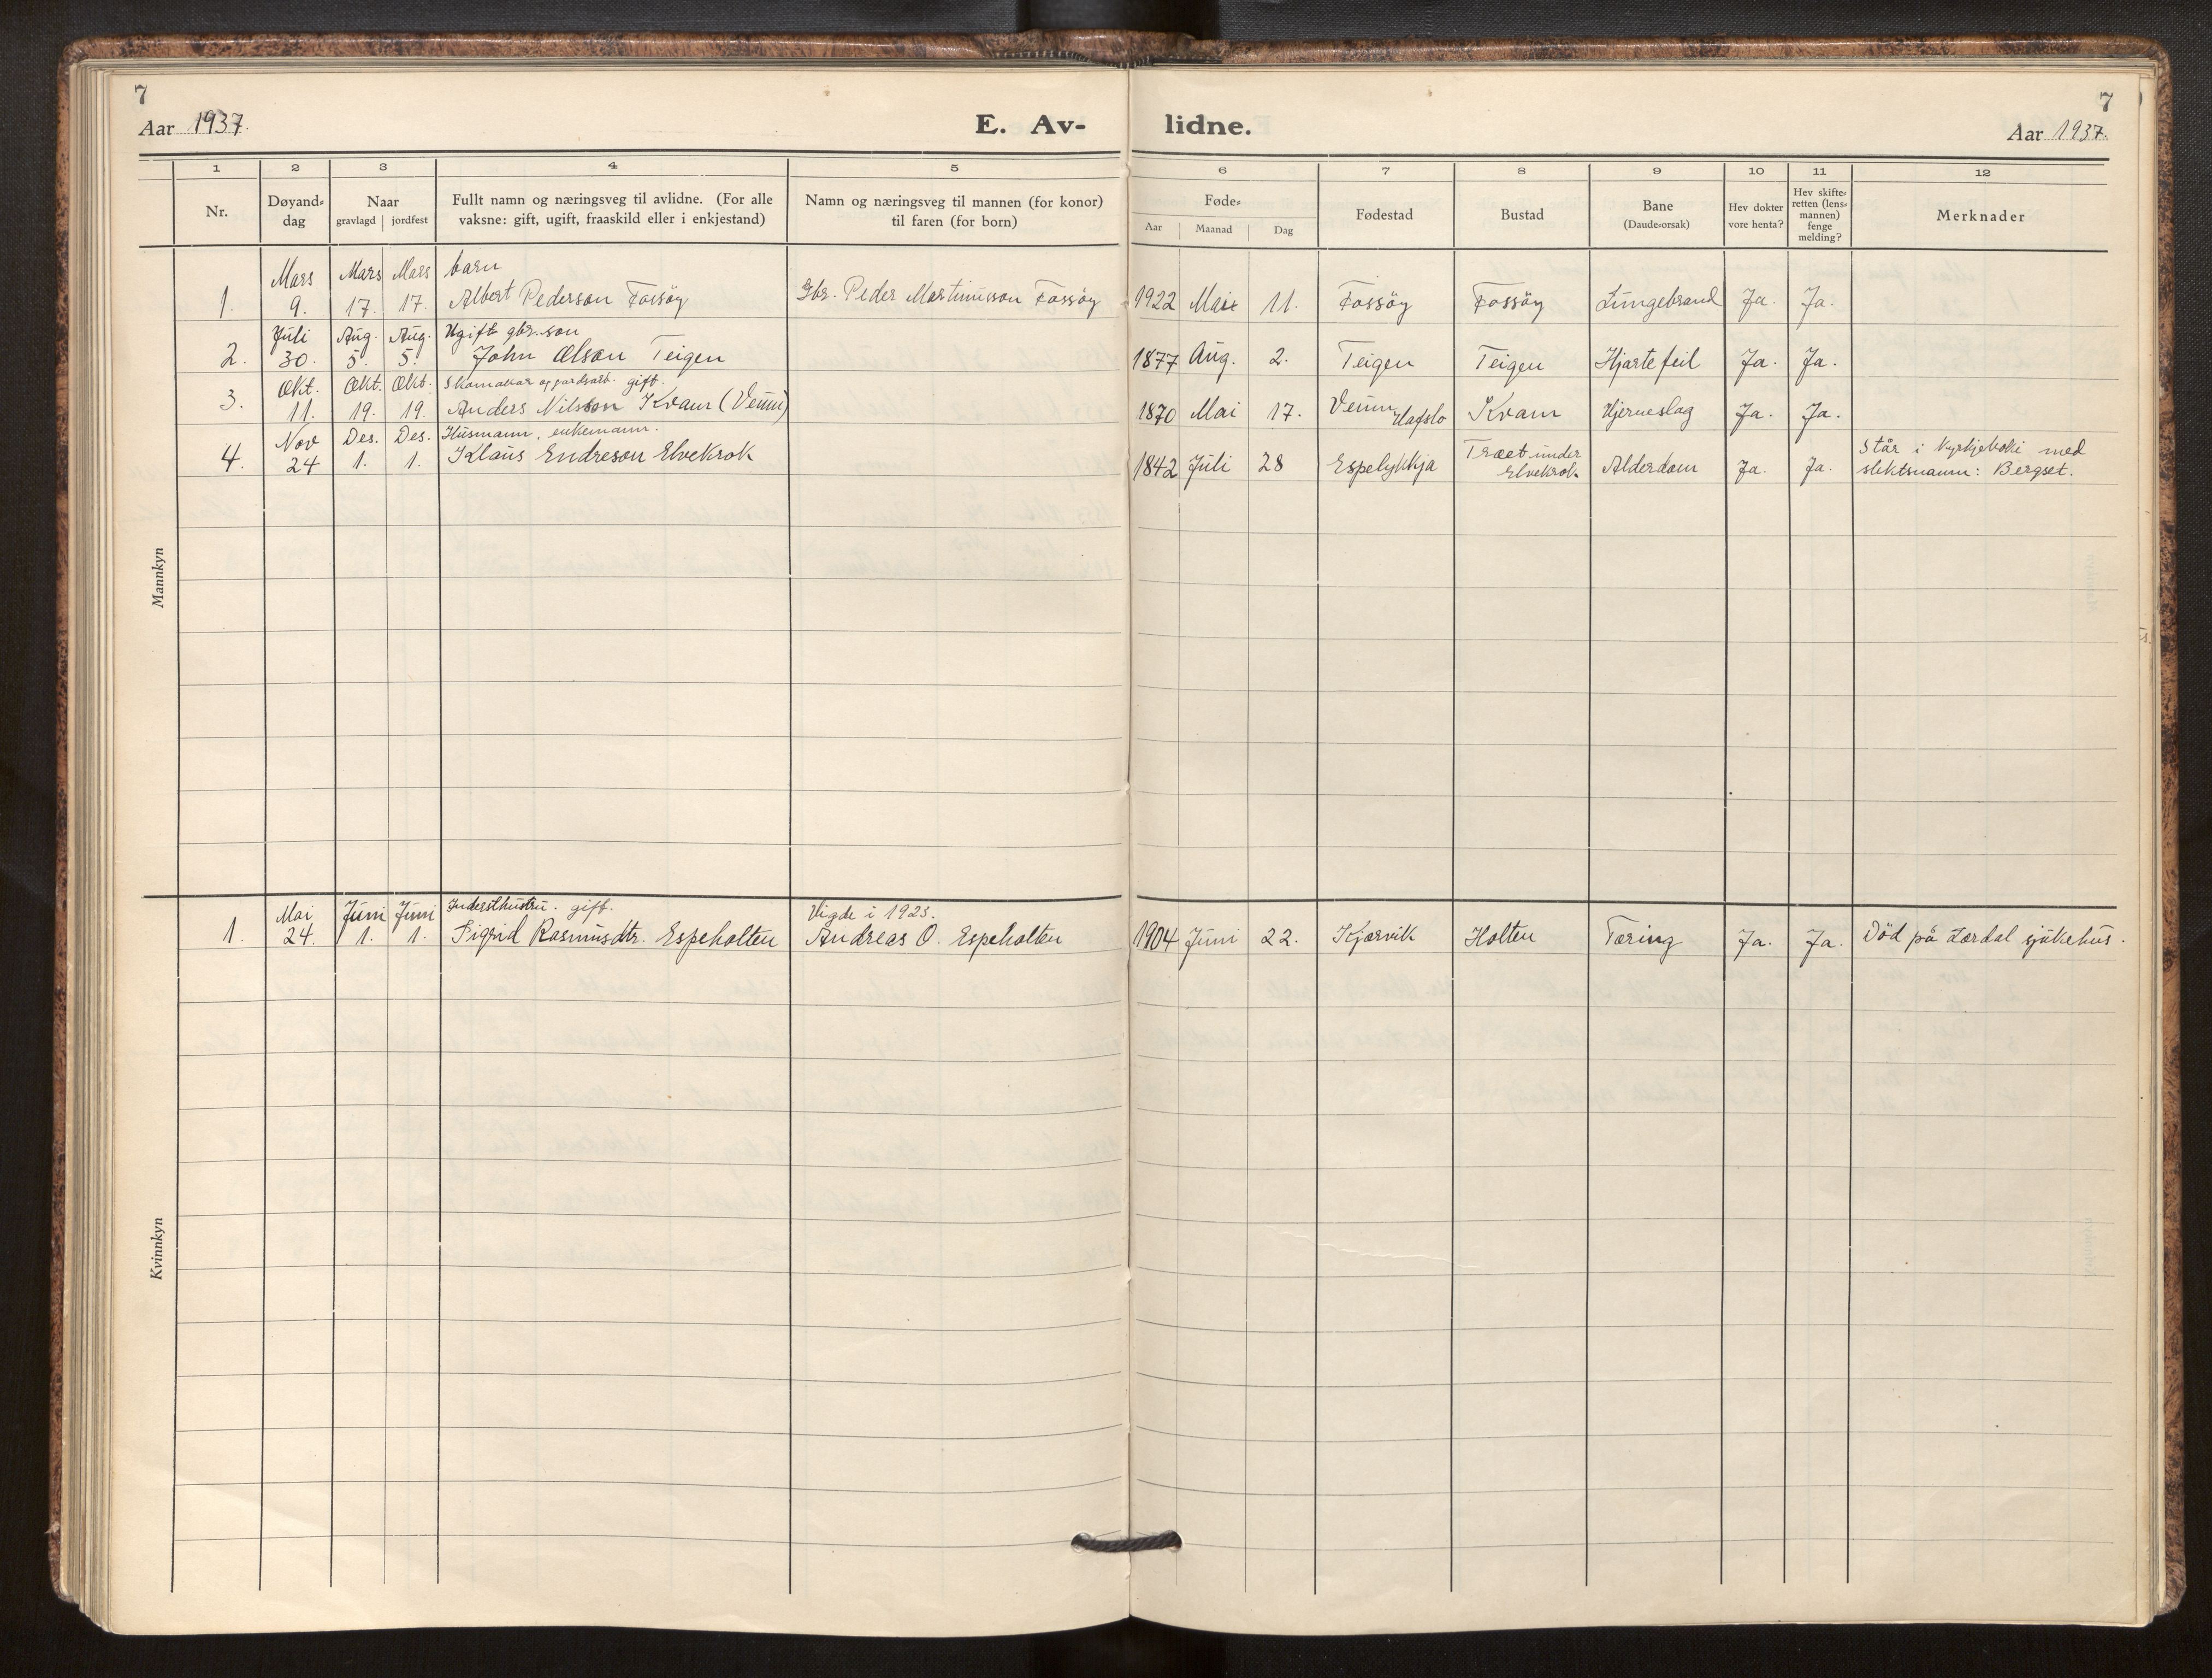 7
Aar 1937.
E. Av-
lidne.
7
Aar 1937.
1 2 3 4 5 6 7 8 9 10 11 12
Nr.
Døyand-
dag
Naar
gravlagd jordfest
Fullt namn og næringsveg til avlidne. (For alle
vaksne: gift, ugift, fraaskild eller i enkjestand)
Namn og næringsveg til mannen (for konor)
til faren (for born)
Føde-
Aar Maanad Dag
Fødestad
Bustad
Bane
(Daude-orsak)
Hev dokter
vore henta?
Hev skifte-
retten (lens-
mannen)
fenge
melding?
Merknader
Mannkyn
Mars Mars Mars barn
1. 9. 17. 17. Albert Pederson Fossöy Gbr. Peder Martinusson Fossöy 1922 Mai 11. Fossöy Fossöy Lungebrand Ja. Ja.
Juli Aug. Aug. Ugift gbr. son
2. 30. 5. 5. John Olson Teigen 1877 Aug. 2. Teigen Teigen Hjartefeil Ja. Ja.
Okt. Okt. Okt. Skomakar og gardsarb. gift.
3. 11. 19. 19. Anders Nilsson Kvam (Venni) 1870 Mai 17. Venni Hafslo Kvam Hjerneslag Ja. Ja.
Nov Des. Des. Husmann, enkemann.
4. 24 1. 1. Klaus Endreson Elvekrok 1842 Juli 28 Espelykkja Træet under
Elvekrok Alderdom Ja. Ja. Står i kyrkjeboki med
slektsnamn: Bergset.
Kvinnkyn
Mai Juni Juni Indersthustru. gift. Vigde i 1923.
1. 24. 1. 1. Sigrid Rasmusdtr. Espeholten Andreas O. Espeholten 1904 Juni 22. Kjærvik Holten Tæring Ja. Ja. Död på Lærdal sjukehus.